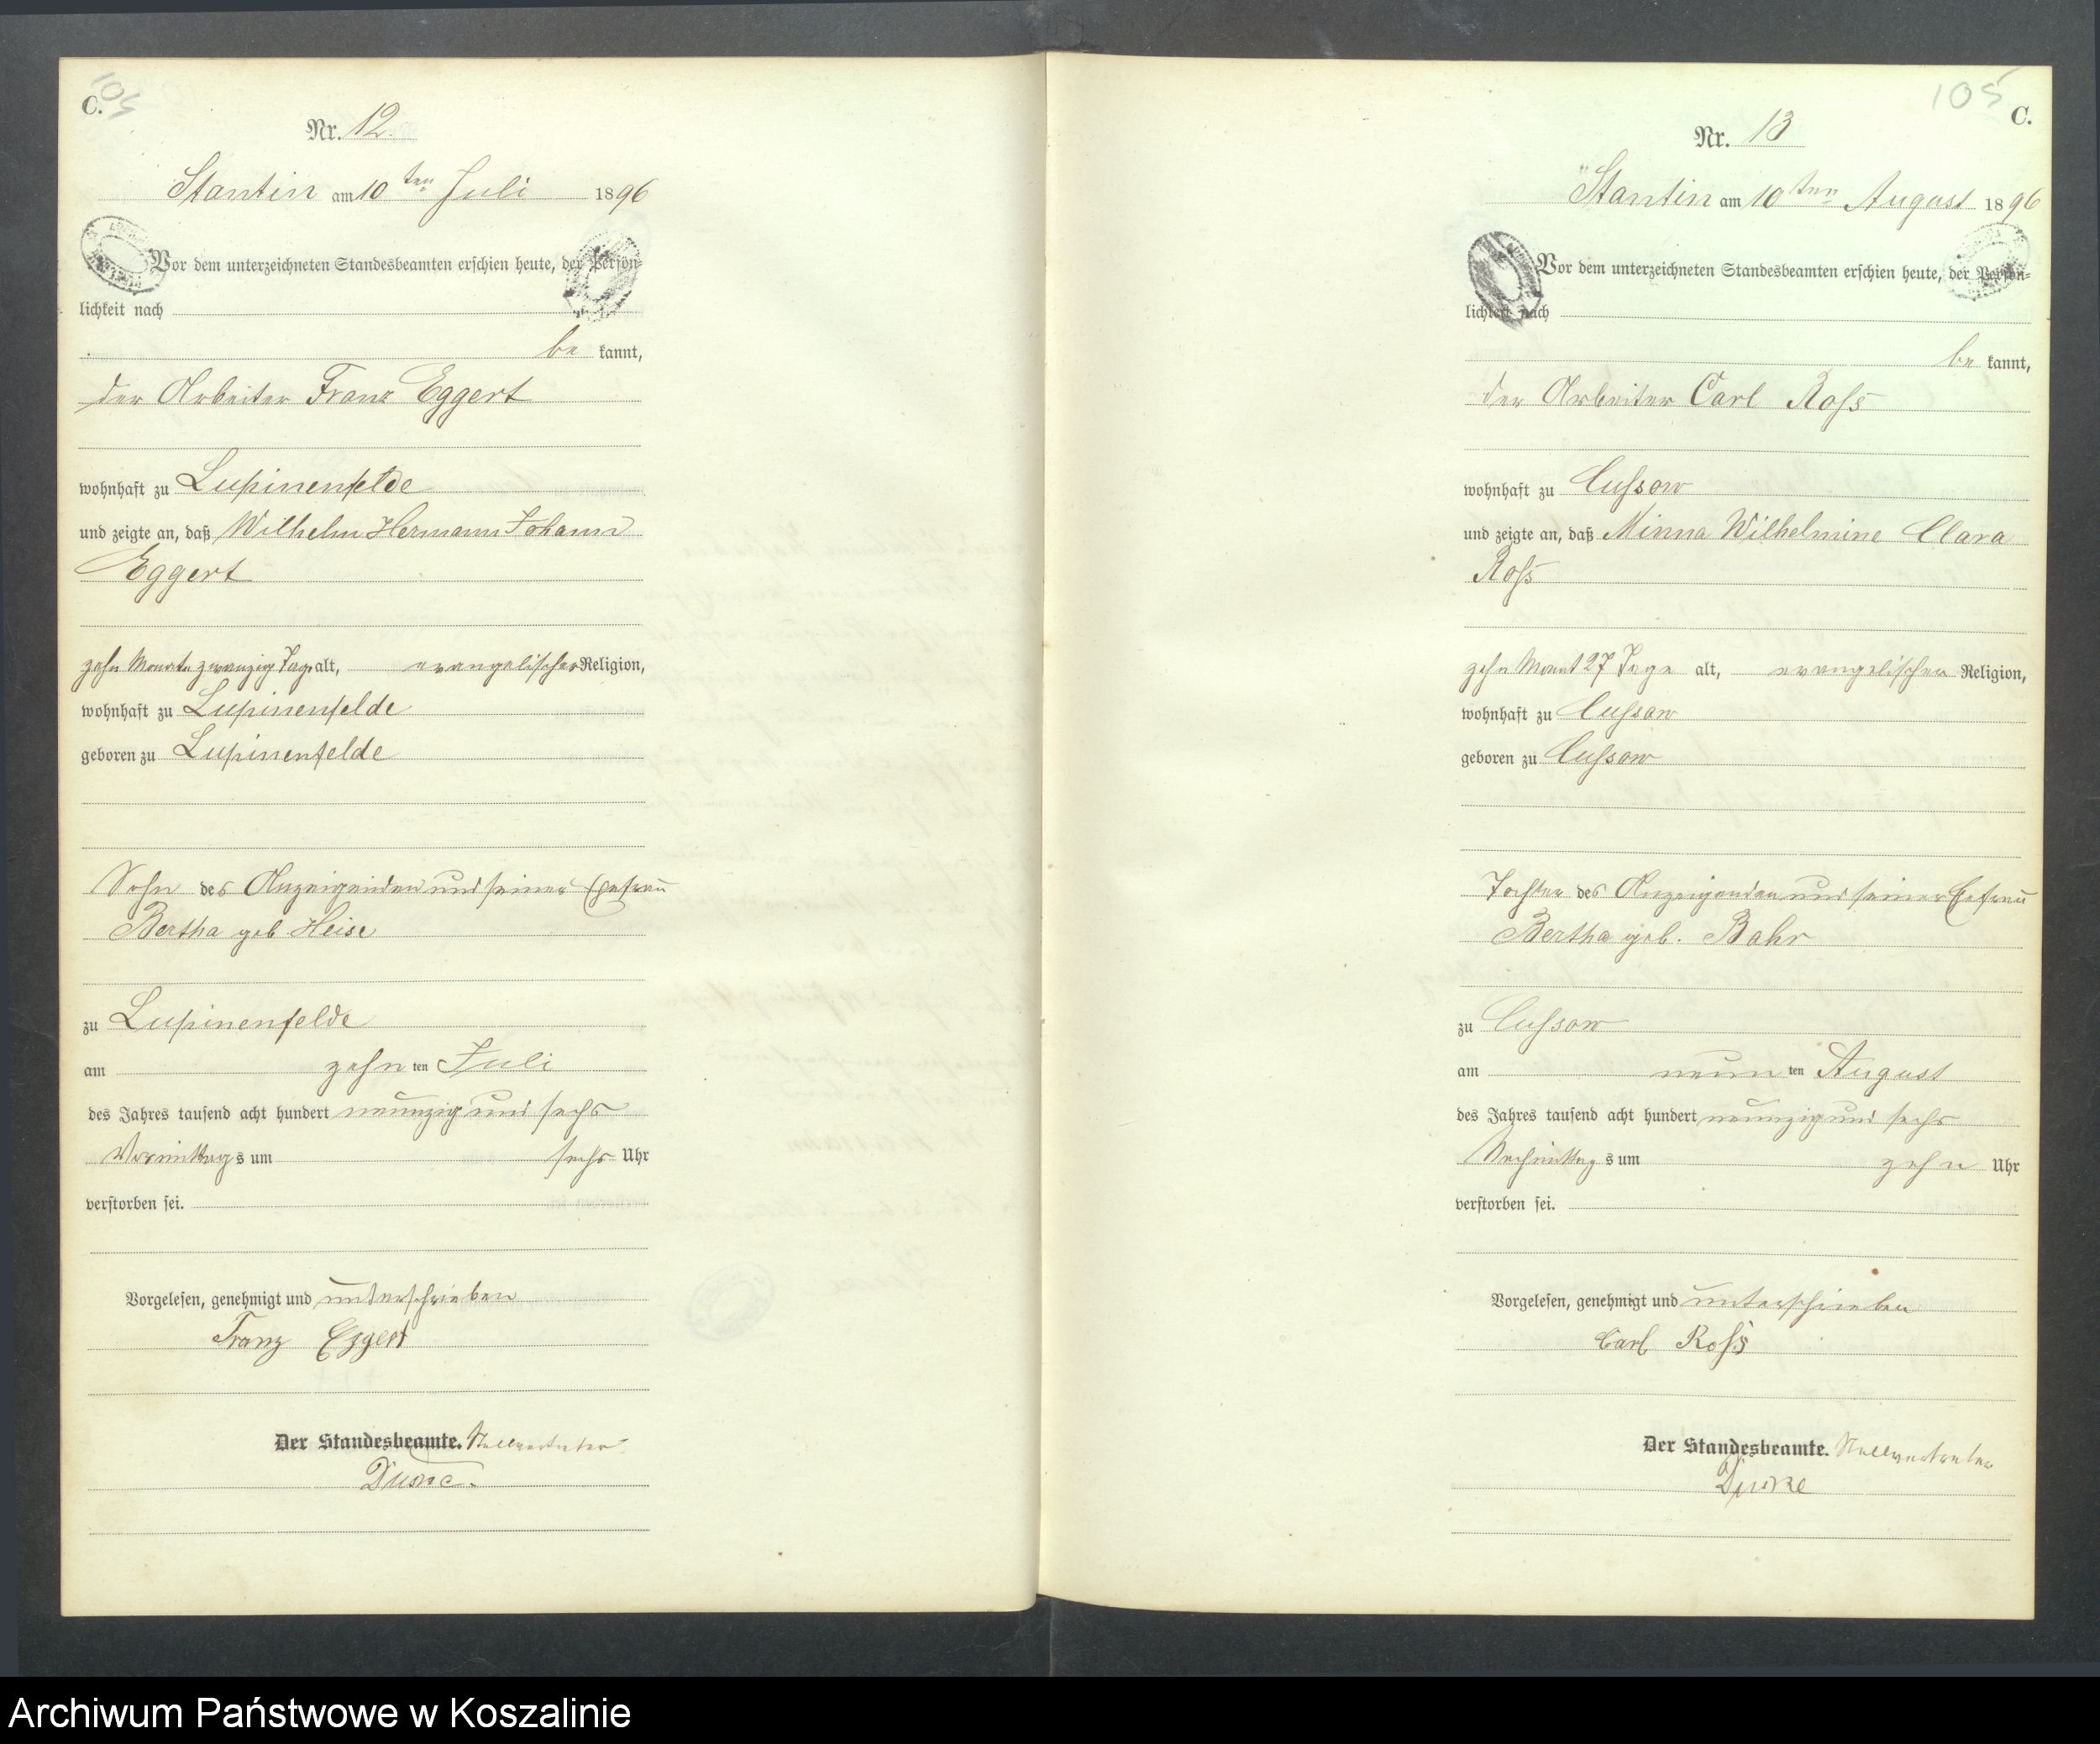 C.
105
Nr. 12.
Stantin am 10 ten Juli 1896
Vor dem unterzeichneten Standesbeamten erschien heute, der Persön=
lichkeit nach
be kannt,
der Arbeiter Franz Eggert
wohnhaft zu Lupinenfelde
und zeigte an, daß Wilhelm Hermann Johann
Eggert
zehn Monate zwanzig Tage alt, evangelischer Religion,
wohnhaft zu Lupinenfelde
geboren zu Lupinenfelde
Sohn des Anzeigenden und seiner Ehefrau
Bertha geb Heise
zu Lupinenfelde
am zehn ten Juli
des Jahres tausend acht hundert neunzig und sechs
Vormittags um sechs Uhr
verstorben sei.
Vorgelesen, genehmigt und unterschrieben
Franz Eggert
Der Standesbeamte. Stellvertreter
105
C.
Nr. 13
Stantin am 10 ten August 1896
Vor dem unterzeichneten Standesbeamten erschien heute, der Persön=
lichkeit nach
be kannt,
der Arbeiter Carl Roſs
wohnhaft zu Cuſsow
und zeigte an, daß Minna Wilhelmine Clara
Roſs
zehn Monat 27 Tage alt, evangelischen Religion,
wohnhaft zu Cuſsow
geboren zu Cuſsow
Tochter des Anzeigenden und seiner Ehefrau
Bertha geb. Bahr
zu Cuſsow
am neun ten August
des Jahres tausend acht hundert neunzig und sechs
Nachmittags um zehn Uhr
verstorben sei.
Vorgelesen, genehmigt und unterschrieben
Carl Roſs
Der Standesbeamte. Stellvertreter
Archiwum Państwowe w Koszalinie